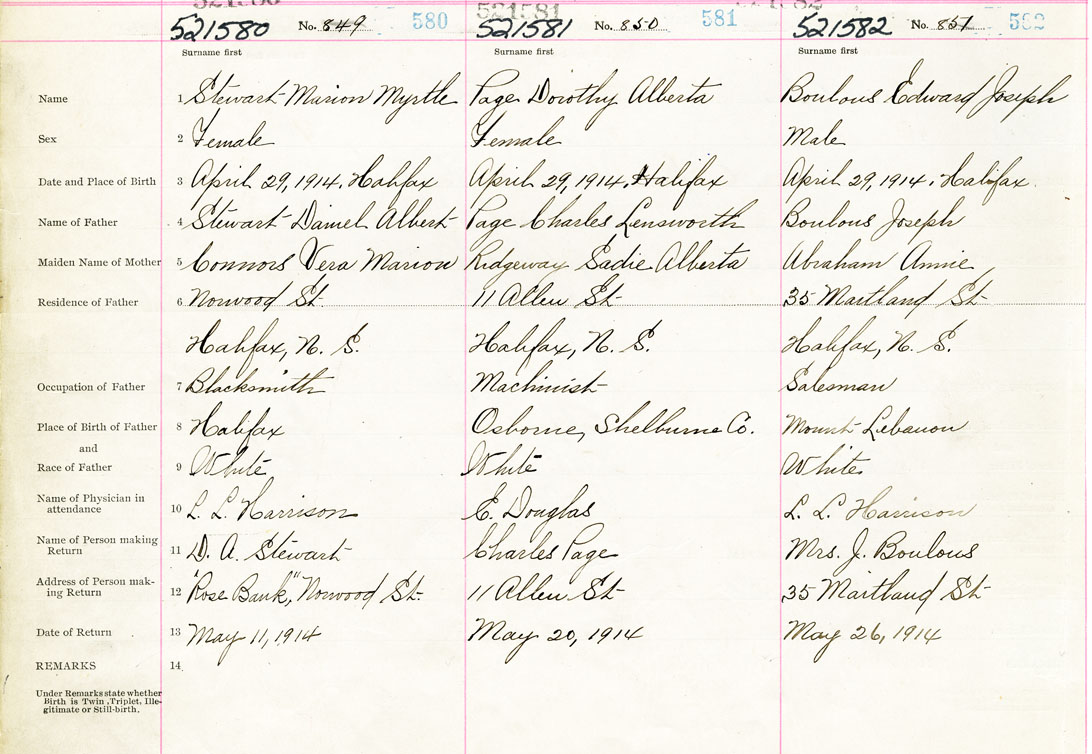 521580 No. 849 580 521581 No. 850 581 521582 No. 851 582
Surname first Surname first Surname first
Name 1 Stewart Marion Myrtle Page Dorothy Alberta Boulous Edward Joseph
Sex 2 Female Female Male
Date and Place of Birth 3 April 29, 1914. Halifax April 29, 1914. Halifax April 29, 1914. Halifax.
Name of Father 4 Stewart Daniel Albert Page Charles Lensworth Boulous Joseph
Maiden Name of Mother 5 Connors Vera Marion Ridgeway Sadie Alberta Abraham Annie
Residence of Father 6 Norwood St. 11 Allen St. 35 Maitland St.
Halifax, N. S. Halifax, N. S. Halifax, N. S.
Occupation of Father 7 Blacksmith Machinist Salesman
Place of Birth of Father 8 Halifax Osborne, Shelburne Co. Mount Lebanon
and
Race of Father 9 White White White
Name of Physician in
attendance 10 L. L. Harrison E. Douglas L. L. Harrison
Name of Person making
Return 11 D. A. Stewart Charles Page Mrs. J. Boulous
Address of Person mak-
ing Return 12 "Rose Bank," Norwood St. 11 Allen St. 35 Maitland St.
Date of Return 13 May 11, 1914 May 20, 1914 May 26, 1914
REMARKS 14
Under Remarks state whether
Birth is Twin, Triplet, Ille-
gitimate or Still-birth.